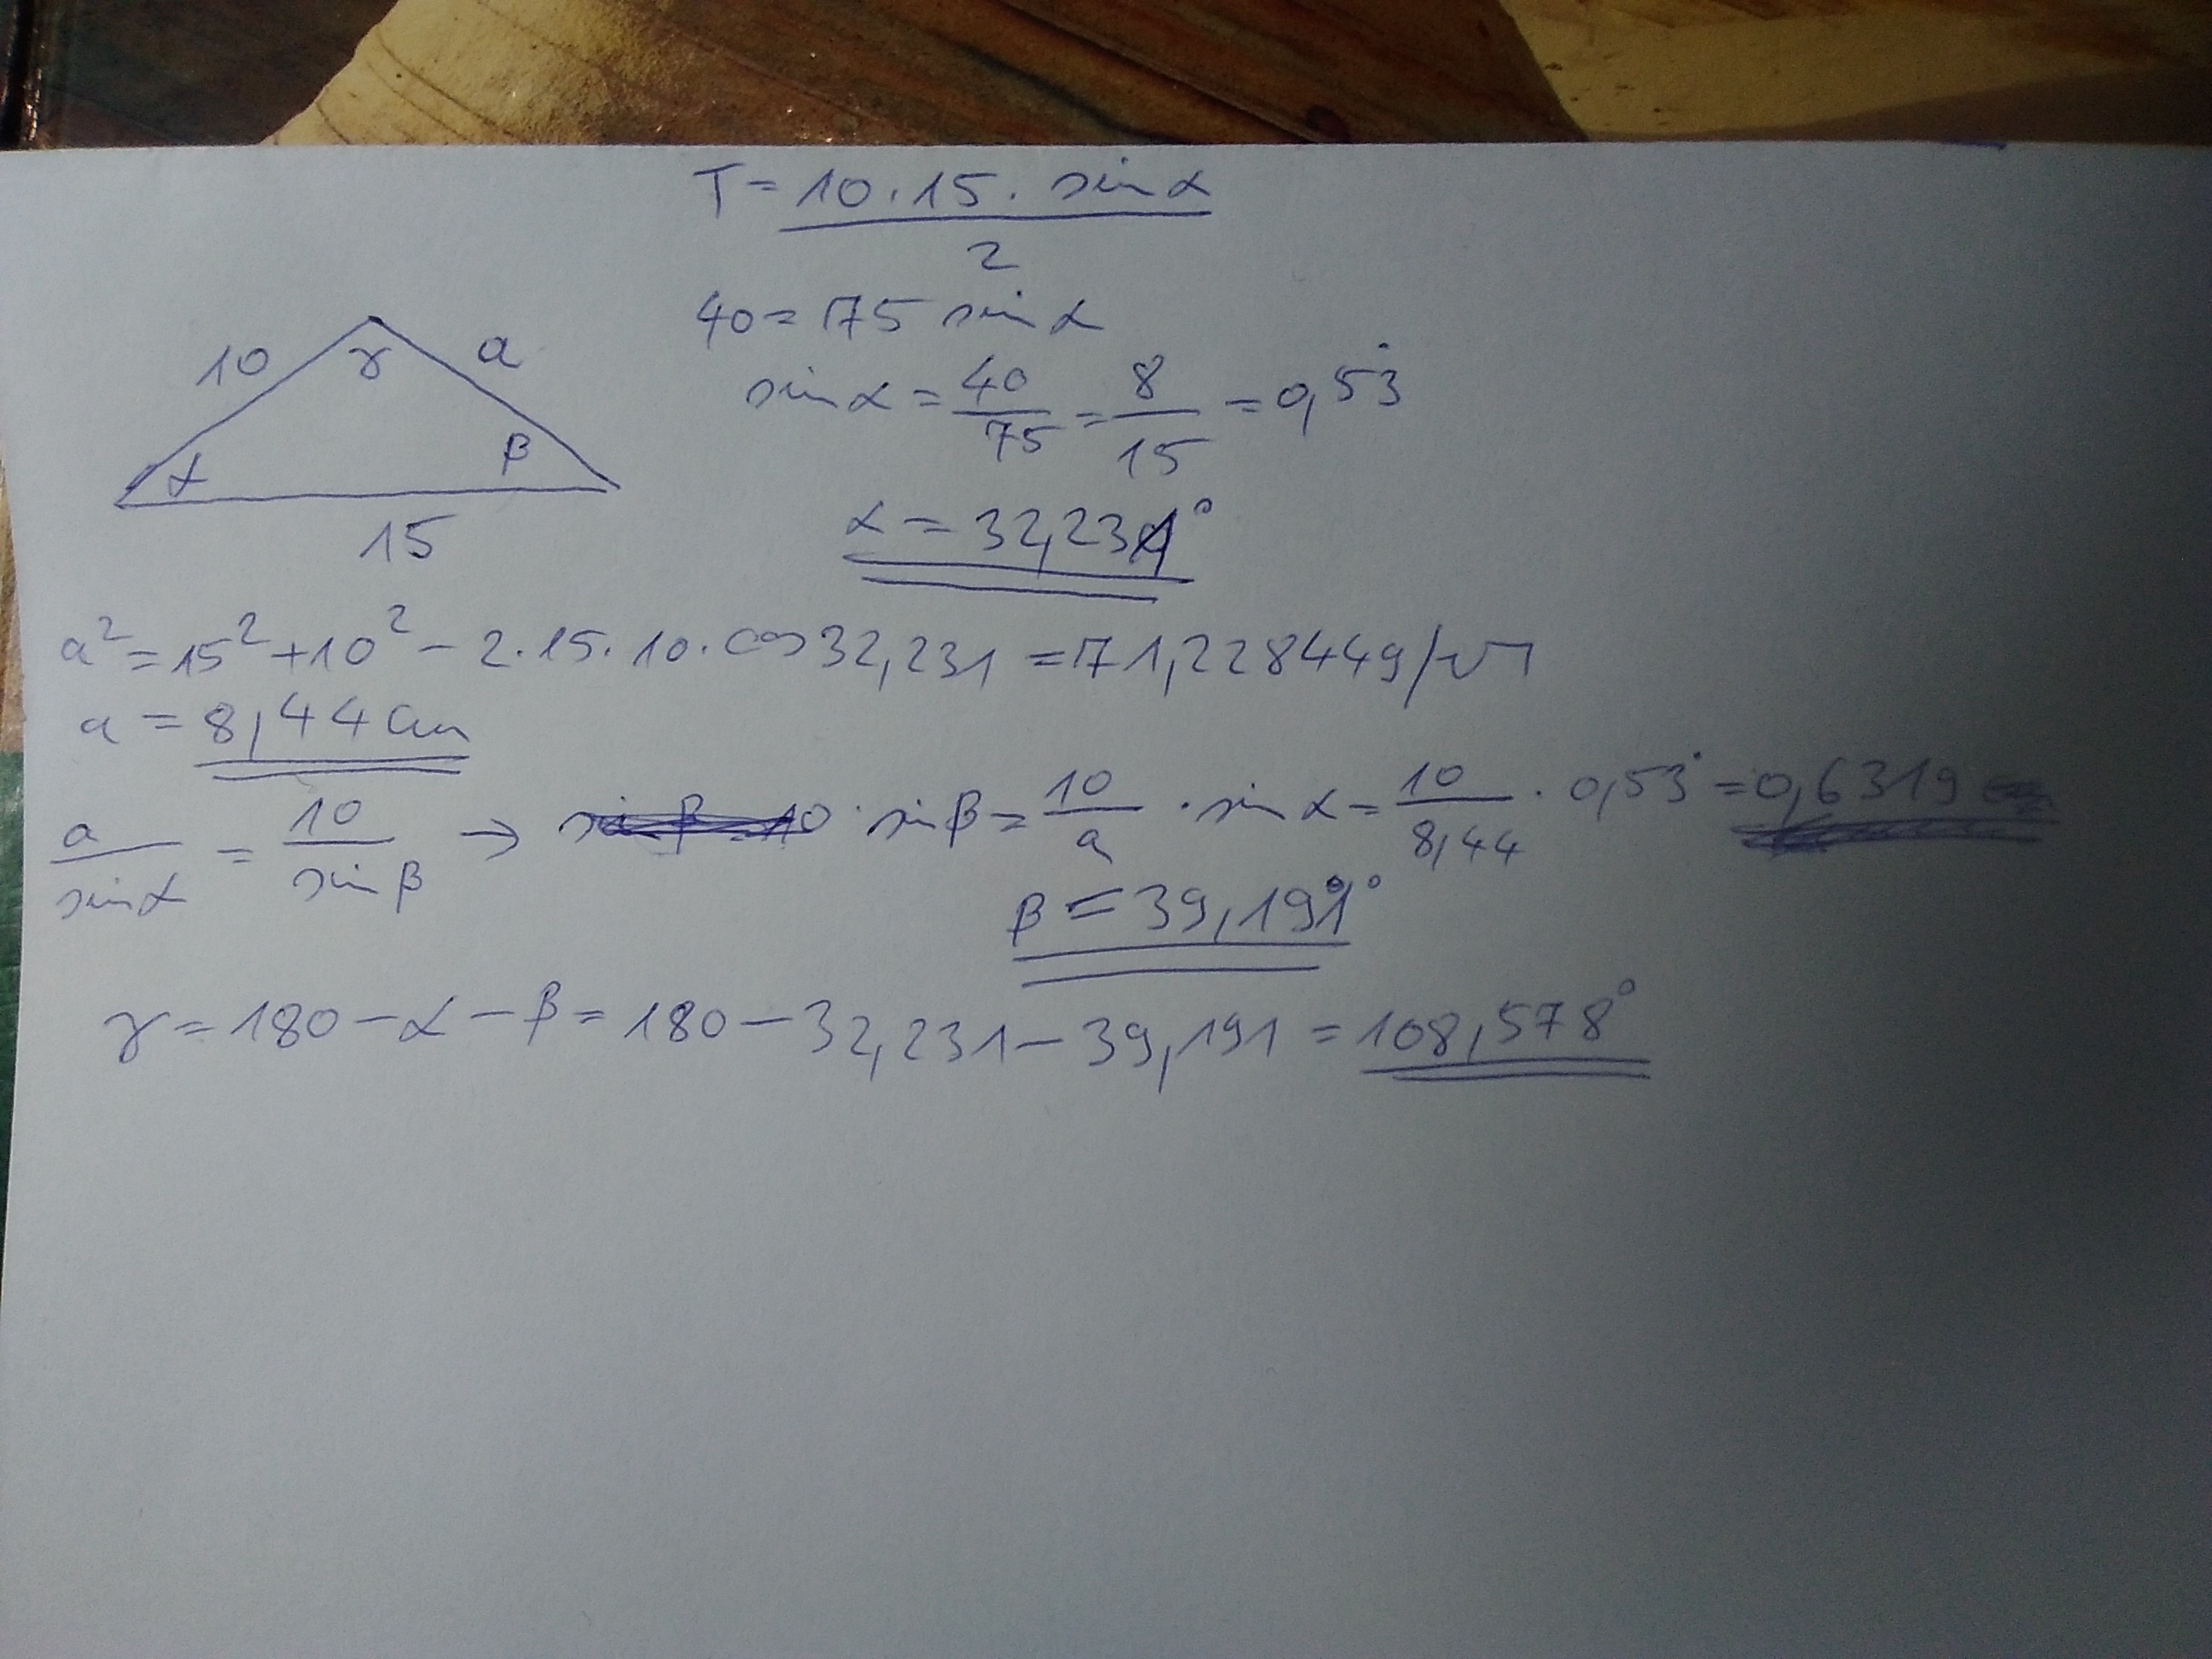 T = 10 · 15 · sin α / 2
40 = 75 sin α
sin α = 40/75 = 8/15 = 0,53̇
α = 32,231°
10 γ a
α β
15
a² = 15² + 10² − 2 · 15 · 10 · cos 32,231 = 71,228449 /√
a = 8,44 cm
a/sin α = 10/sin β → sin β = 10/a · sin α = 10/8,44 · 0,53̇ = 0,6319
β = 39,191°
γ = 180 − α − β = 180 − 32,231 − 39,191 = 108,578°